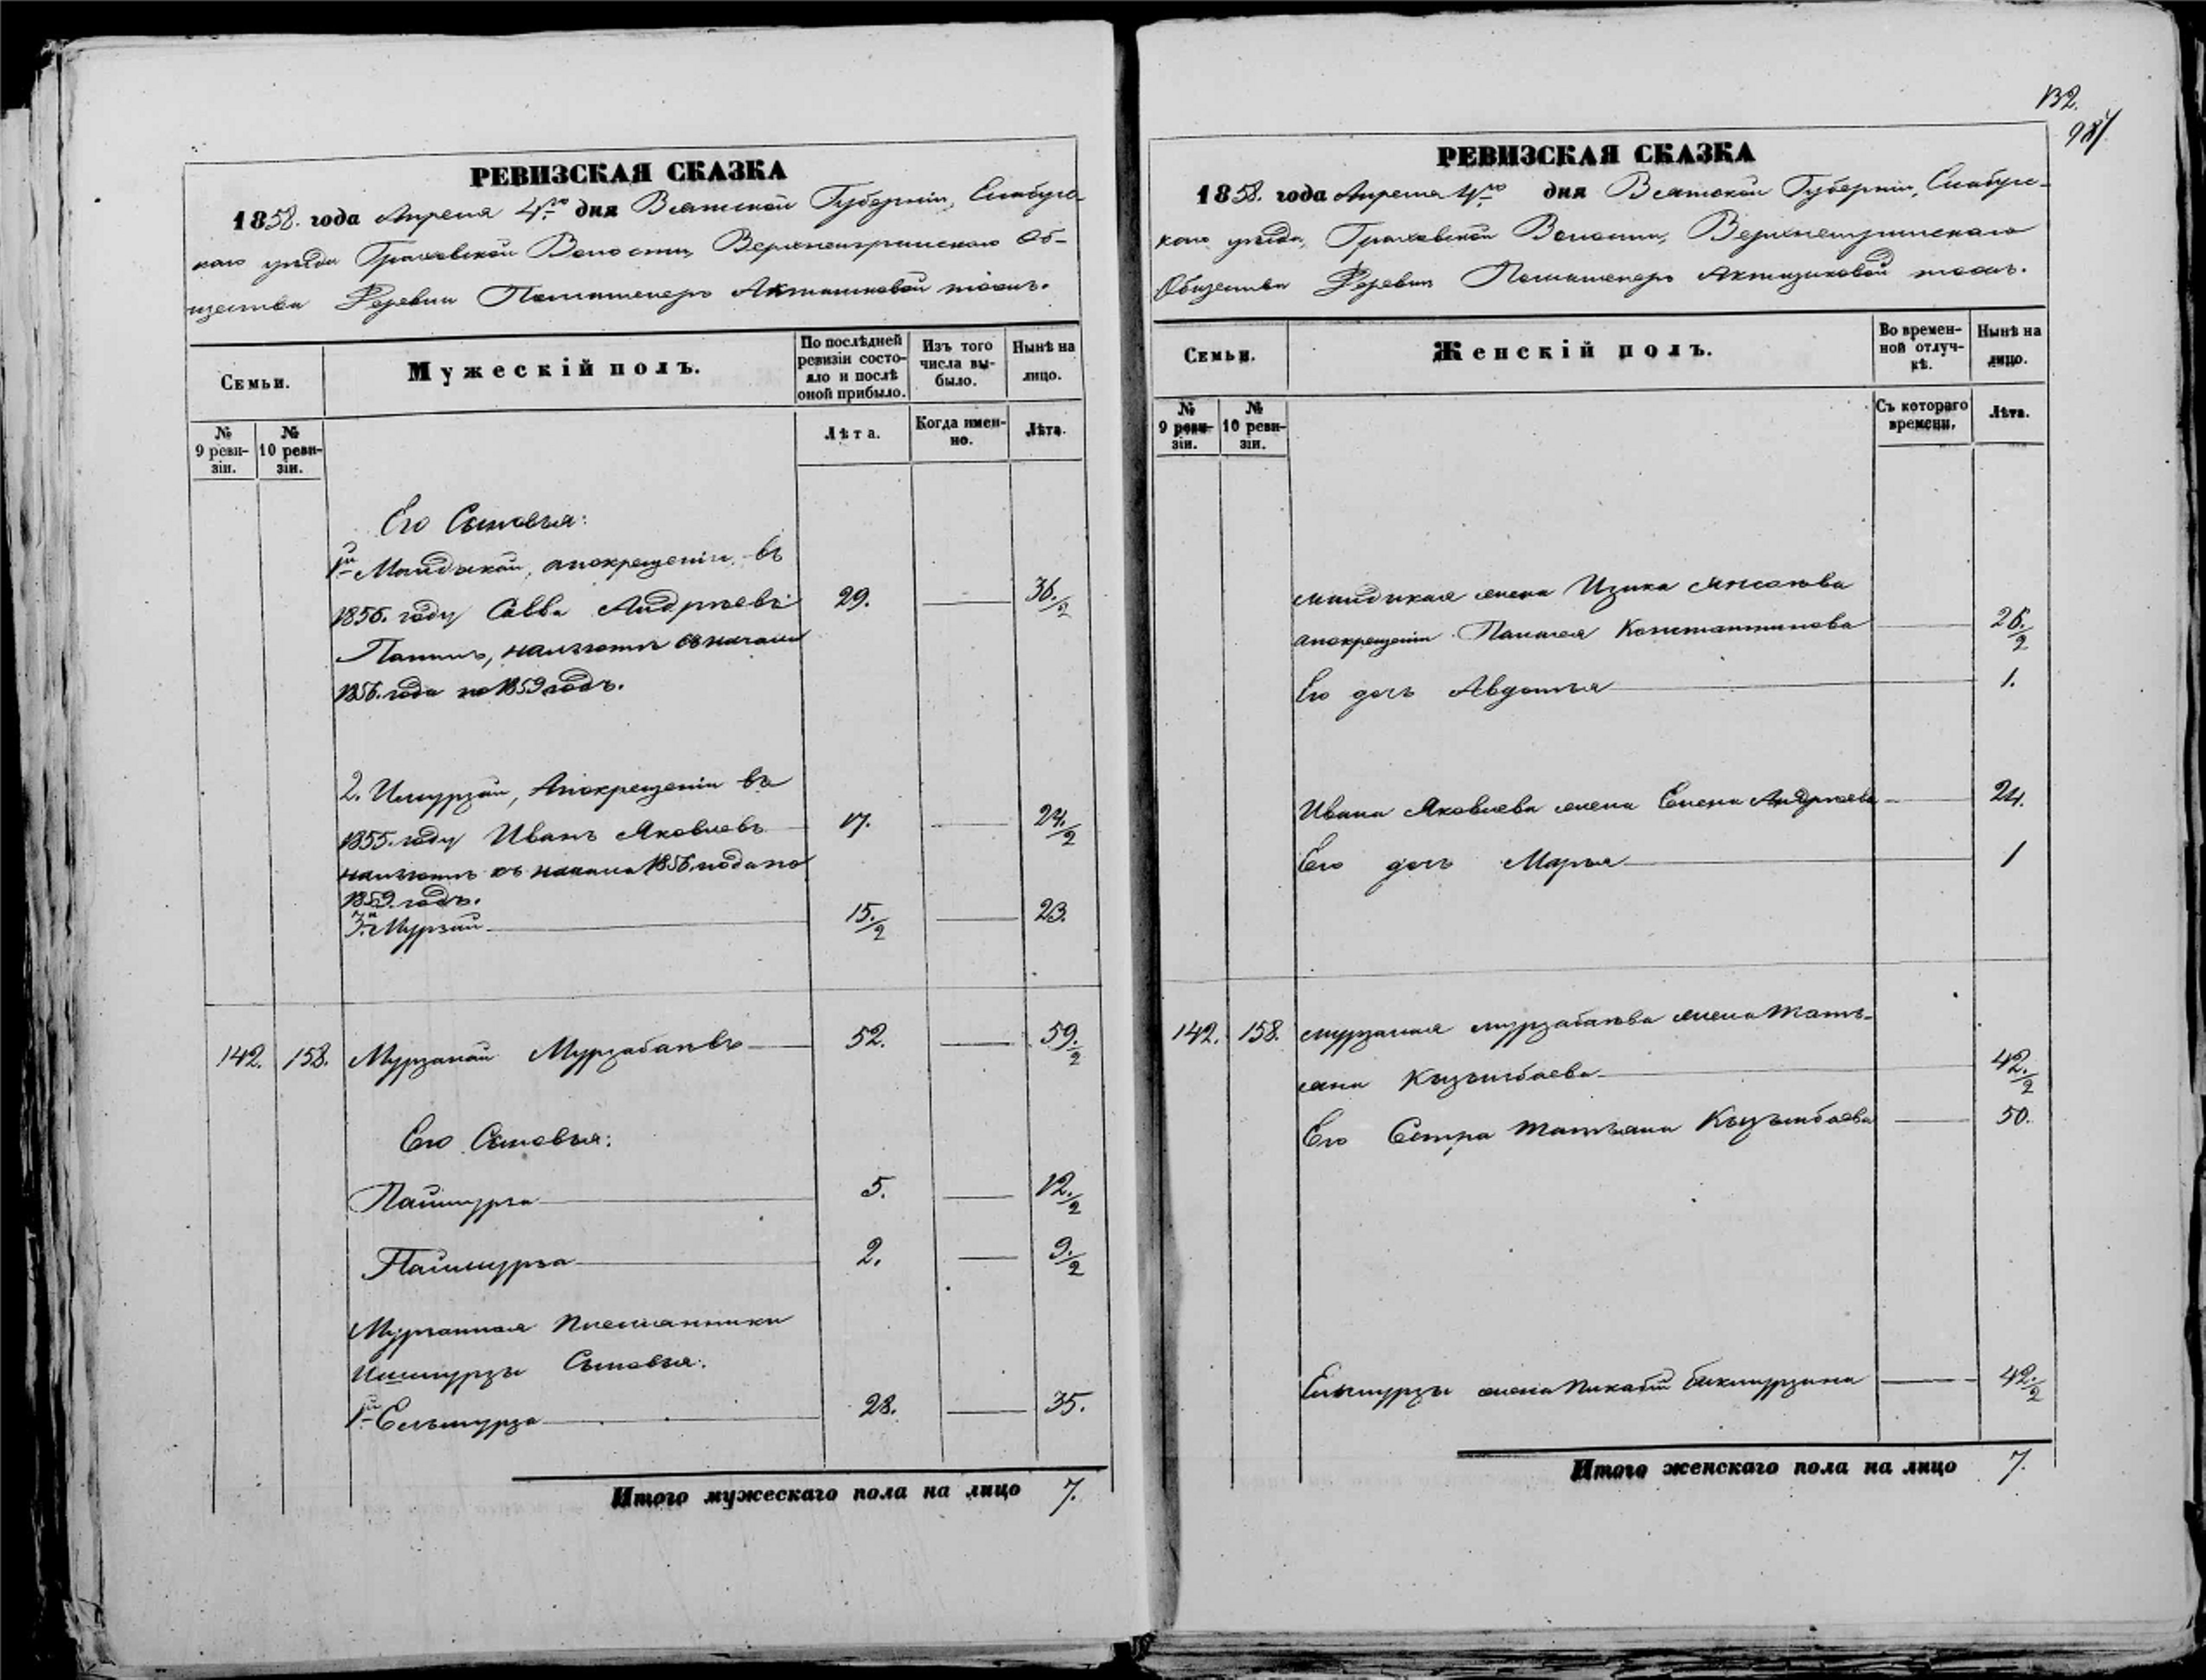 РЕВИЗСКАЯ СКАЗКА
1858. года Апреля 4го дня Вятской Губернiи, Елабуж-
каго уѣзда Граховской Волости, Верхнеигринскаго Об-
щества Деревни Акташковой тожъ.
Семьи.
Мужескiй полъ.
По послѣдней ревизiи состо-
яло и послѣ
оной прибыло.
Изъ того
числа вы-
было.
Нынѣ на
лицо.
№
9 реви-
зiи.
№
10 реви-
зiи.
Лѣта.
Когда имен-
но.
Лѣта.
Его Сыновья:
1й, апокрещенiи въ
1856. году Савва Андреевъ 29. 36./2
съ начала
1856. года по 1859 годъ.
2. апокрещенiи въ
1855. году Иванъ Яковлевъ 17. 24./2
съ начала 1856. года по
1859. годъ.
3й Мурзай 15./2 23.
142. 158. Мурзанай Мурзабаевъ 52. 59./2
Его Сыновья:
Паймурза 5. 12./2
2. 9./2
племянники
Ишмурзы Сыновья:
1й Ельмурза 28. 35.
Итого мужескаго пола на лицо 7.
132.
987
РЕВИЗСКАЯ СКАЗКА
1858. года Апреля 4го дня Вятской Губернiи, Елабуж-
каго уѣзда, Граховской Волости, Верхнеигринскаго
Общества Деревни тожъ.
Семьи.
Женскiй полъ.
Во времен-
ной отлуч-
кѣ.
Нынѣ на
лицо.
№
9 реви-
зiи.
№
10 реви-
зiи.
Съ котораго
времени.
Лѣта.
жена
апокрещенiи Константинова 26./2
Его дочь Авдотья 1.
Ивана Яковлева жена Елена Андреева 24.
Его дочь Марья 1
142. 158. Мурзаная Мурзабаева жена Мать-
яна Кызылбаева 42./2
Его Сестра Матьяна Кызылбаева 50.
Ельмурзы жена Бикмурзина 42./2
Итого женскаго пола на лицо 7.